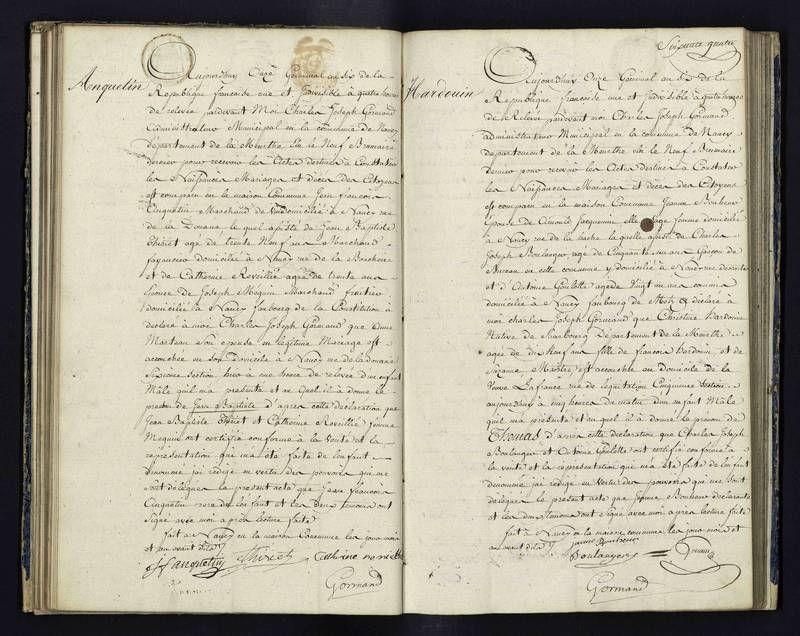 Anquetin
Aujourdhuy Onze Germinal an six de la
République francaise une et Indivisible à quatre heures
de relevée pardevant Moi Charles Joseph Gormand
administrateur Municipal en la commune de Nancy
département de la Meurthe élu le Neuf Brumaire
dernier pour recevoir les Actes destinés à Constater
les Naissances Mariages et décès des Citoyens
est comparu en la maison Commune Jean francois
Anquetin Marchand de domicilié à Nancy rue
de la Douane le quel assisté de Jean Baptiste
Thiret age de trente Neuf ans Marchand
fayancier domicilié à Nancy rue de la
et de Catherine Reveillé agée de trente ans
femme de Joseph Moquin Marchand fruitier
domicilié à Nancy faubourg de la Constitution à
déclaré à moi Charles Joseph Gormand que Anne
Marteau son épouse en légitime Mariage est
accouchée en son domicile à Nancy rue de la douane
Sixieme Section hier à une heure de relevée d'un enfant
Mâle qu'il m'a présenté et au quel il a donné le
prenom de Jean Baptiste d'apres cette déclaration que
Jean Baptiste Thiret et Catherine Reveillé femme
Moquin ont certifié conforme à la vérité et la
représentation qui m'a été faite de l'enfant
dénommé j'ai rédigé en vertu des pouvoirs qui me
sont délégués le present acte que Jean francois
Anquetin pere de l'enfant et les deux temoins ont
Signé avec moi apres lecture faite
fait à Nancy en la maison Commune les jour mois
et an avant dits
J f anquetin Thiret Catherine
Gormand
Soixante quatre
Hardouin
Aujourdhuy Onze Germinal an six de la
République francaise une et Indivisible à quatre heures
de Relevée pardevant moi Charles Joseph Gormand
administrateur Municipal en la commune de Nancy
département de la Meurthe élu le Neuf Brumaire
Dernier pour recevoir les Actes destinés à Constater
les Naissances Mariages et décès des Citoyens
est comparu en la maison Commune Jeanne Bonheur
épouse de Jacquemin elle sage femme domiciliée
à Nancy rue de la hache la quelle assistée de Charles
Joseph Boulanger age de Cinquante ans Garçon de
Bureau en cette commune y domicilié à Nancy rue
et d'Antoine Goulotte agé de Vingt un ans commis
domicilié à Nancy faubourg de Metz à déclaré à
moi charles Joseph Gormand que Christine Hardouin
Native de Sarrbourg Département de la Meurthe
agee de dix neuf ans fille de francois Hardouin et de
Suzanne est accouchée au domicile de la
Veuve Lafrance rue de l'équitation Cinquieme Section
aujourdhuy à cinq heures du matin d'un enfant Mâle
quil m'a présenté et au quel il a donné le prenom de
Thomas d'apres cette déclaration que Charles Joseph
Boulanger et Antoine Goulotte ont certifié conforme à
la vérité et la représentation qui m'a été faite de l'enfant
dénommé j'ai rédigé en Vertu des pouvoirs qui me sont
délégués le présent acte que Jeanne Bonheur déclarante
et les deux temoins ont signé avec moi apres lecture faite
fait à Nancy en la maison commune les jour mois et
an avant dits
jeanne Bonheur
Boulanger
Gormand